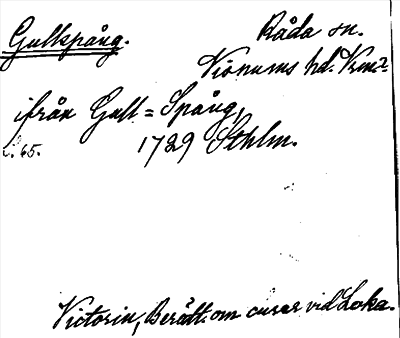 Gullspång.
Råda sn.
Visnums hd. Vrml.
ifrån Gull=Spång,
s. 65.
1729 Sthlm.
Victorin, Berätt. om curer vid Loka.